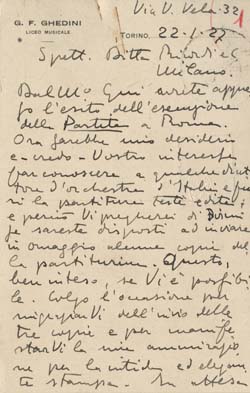 Via V. Vela 32
G. F. GHEDINI
LICEO MUSICALE
TORINO, 22-1-27
Spett. Ditta Ricordi e C.
Milano.
Dal Mo Gui avrete appre-
so l'esito dell'esecuzione
della Partita a Roma.
Ora sarebbe mio desiderio
e - credo - Vostro interesse
far conoscere a qualche diret-
tore d'orchestra d'Italia e fuo-
ri la partitura testé edita;
e perciò Vi pregherei di
se sareste disposti ad inviare
in omaggio alcune copie del
la partiturina. Questo,
ben inteso, se Vi è possibi-
le. Colgo l'occasione per
ringraziarVi dell'invio delle
tre copie e per manife
starVi la mia ammirazio
ne per la nitida ed elegan
te stampa. In attesa